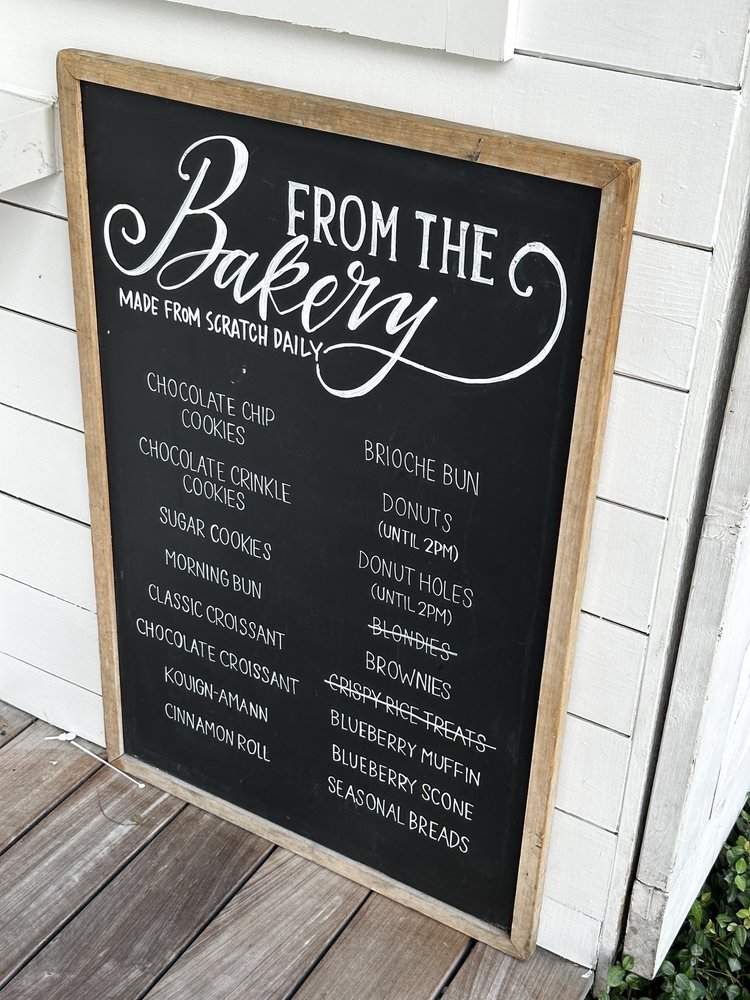 FROM THE
Bakery
MADE FROM SCRATCH DAILY
CHOCOLATE CHIP
COOKIES
CHOCOLATE CRINKLE
COOKIES
SUGAR COOKIES
MORNING BUN
CLASSIC CROISSANT
CHOCOLATE CROISSANT
KOUIGN-AMANN
CINNAMON ROLL
BRIOCHE BUN
DONUTS
(UNTIL 2PM)
DONUT HOLES
(UNTIL 2PM)
BLONDIES
BROWNIES
CRISPY RICE TREATS
BLUEBERRY MUFFIN
BLUEBERRY SCONE
SEASONAL BREADS